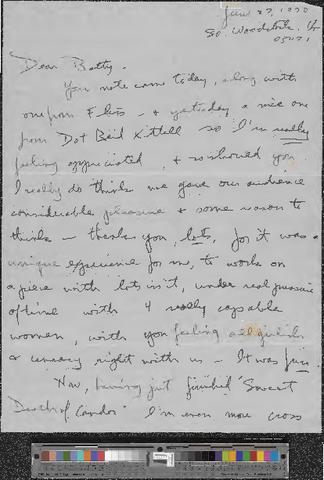 Jan 27, 1970
So. Woodstock, Vt
05071
Dear Betty -
Your note came today, along with
one from - & yesterday a nice one
from Dot Kittell so I'm really
feeling appreciated, & so should you
I really do think we gave our audience
considerable pleasure & some reason to
think - thank you, lots, for it was a
unique experience for me, to work on
a piece with lots in it, under real pressure
of time with 4 really capable
women, with you feeling
& uneasy right with us - It was fun.
Now, having just finished "Sweet
Death of Candor" I'm even more cross